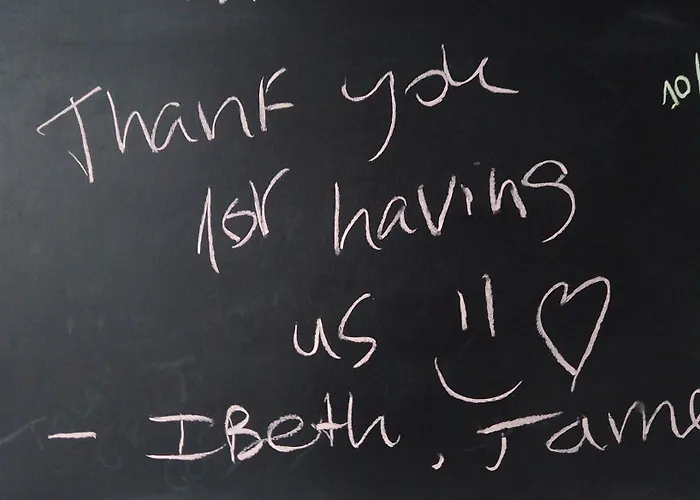 Thank you
10/
for having
us
- IBeth, Jame